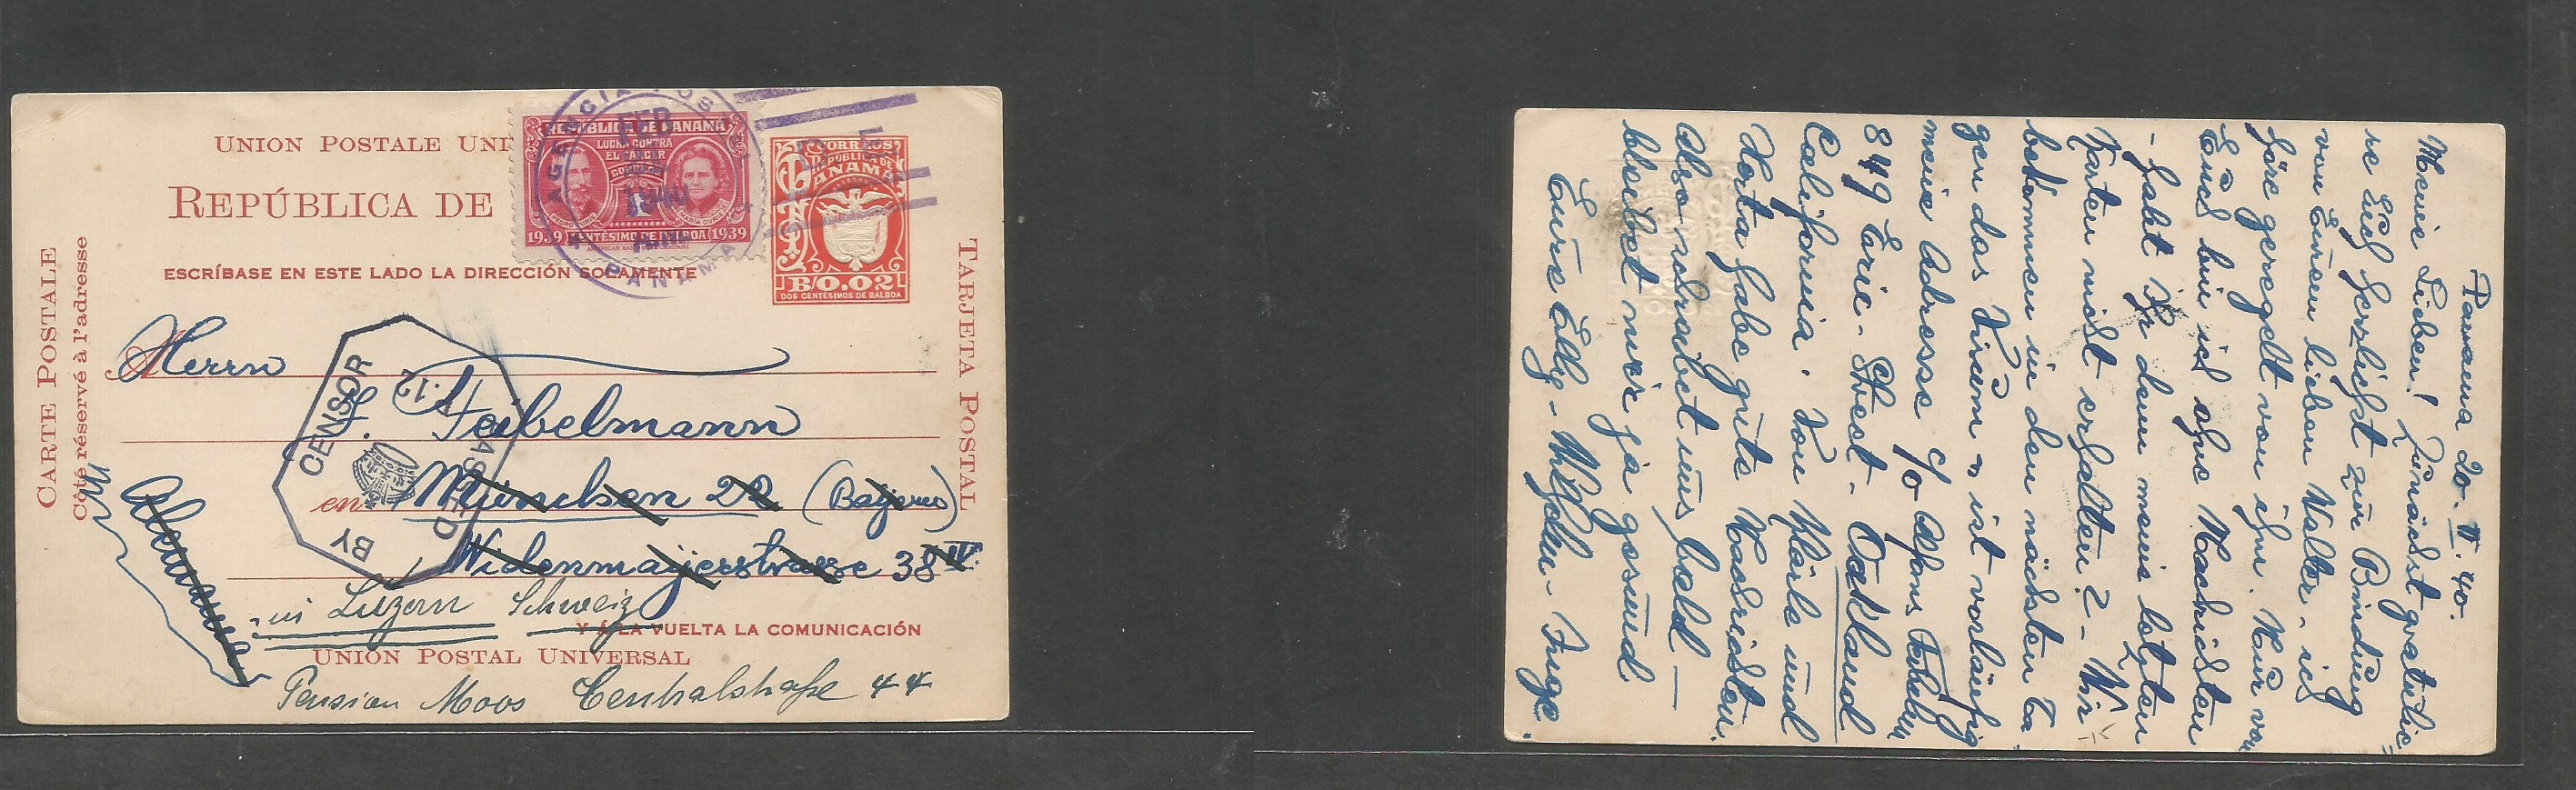 UNION POSTALE UNI
REPÚBLICA DE
ESCRÍBASE EN ESTE LADO LA DIRECCIÓN SOLAMENTE
CARTE POSTALE
Côté réservé à l'adresse
TARJETA POSTAL
REPÚBLICA DE PANAMA
LUCHA CONTRA
EL CANCER
CORREOS
1939 CENTÉSIMO DE BALBOA 1939
AGENCIA POS
FEB
1940
PANAMA
CORREOS
REPÚBLICA DE
PANAMA
B/0.02
DOS CENTÉSIMOS DE BALBOA
Herrn
J. Feibelmann
en München 22 (Bayern)
Widenmayerstrasse 38 IV.
Alemania
in Luzern Schweiz
Y Á LA VUELTA LA COMUNICACIÓN
UNIÓN POSTAL UNIVERSAL
Pension Moos Centralstraße 44
PASSED
BY
CENSOR
I.12
Panama 20. II. 40.
Meine Lieben! Zunächst gratulie=
re Euch herzlichst zur Bindung
von Eurem lieben Walter - ich
höre geregelt von ihm. Nur von
Euch bin ich ohne Nachrichten
- habt Ihr denn meine letzten
Karten nicht erhalten? - Wir
bekommen in den nächsten Ta
gen das Visum & ist vorläufig
meine Adresse c/o Alfons
849 Erie - Street - Oakland
California. Von Märle und
Herta habe gute Nachrichten.
Also schreibet uns bald -
bleibet mir ja gesund
Eure Elly - Wilhelm - Inge.